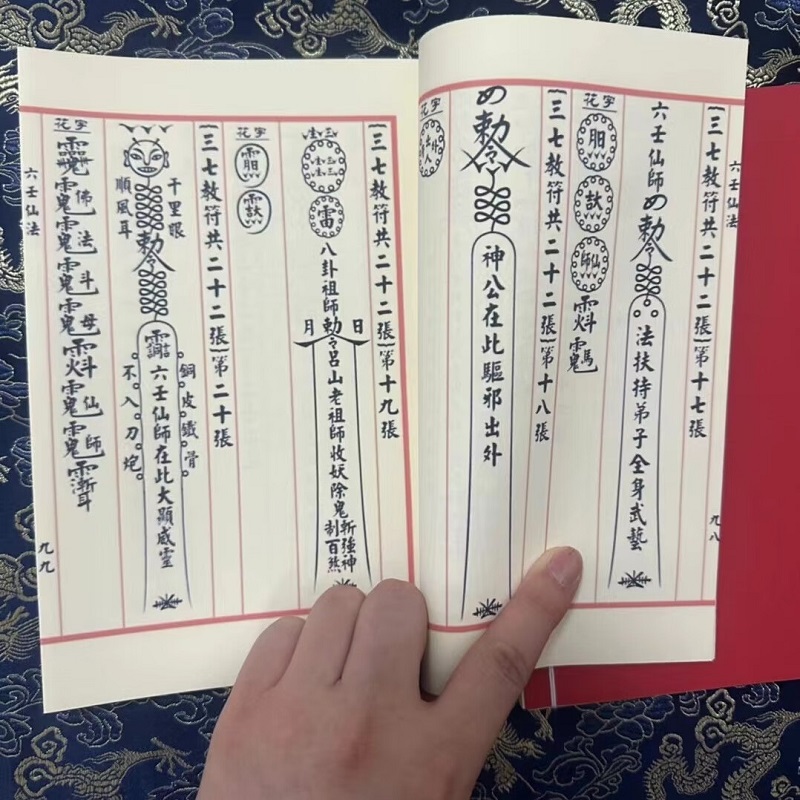 六壬仙法
九八
三七教符共二十二張第十七張
六壬仙師
勅令
法扶持弟子全身武藝
花字
仙師
三七教符共二十二張第十八張
勅令
神公在此驅邪出外
花字
三七教符共二十二張第十九張
雷
八卦祖師
日
月
勅令
呂山老祖師收妖除鬼
斬強神
制百煞
花字
三七教符共二十二張第二十張
千里眼
順風耳
勅令
銅皮鐵骨
六壬仙師在此大顯威靈
不入刀炮
花字
佛法斗母
仙師
六壬仙法
九九